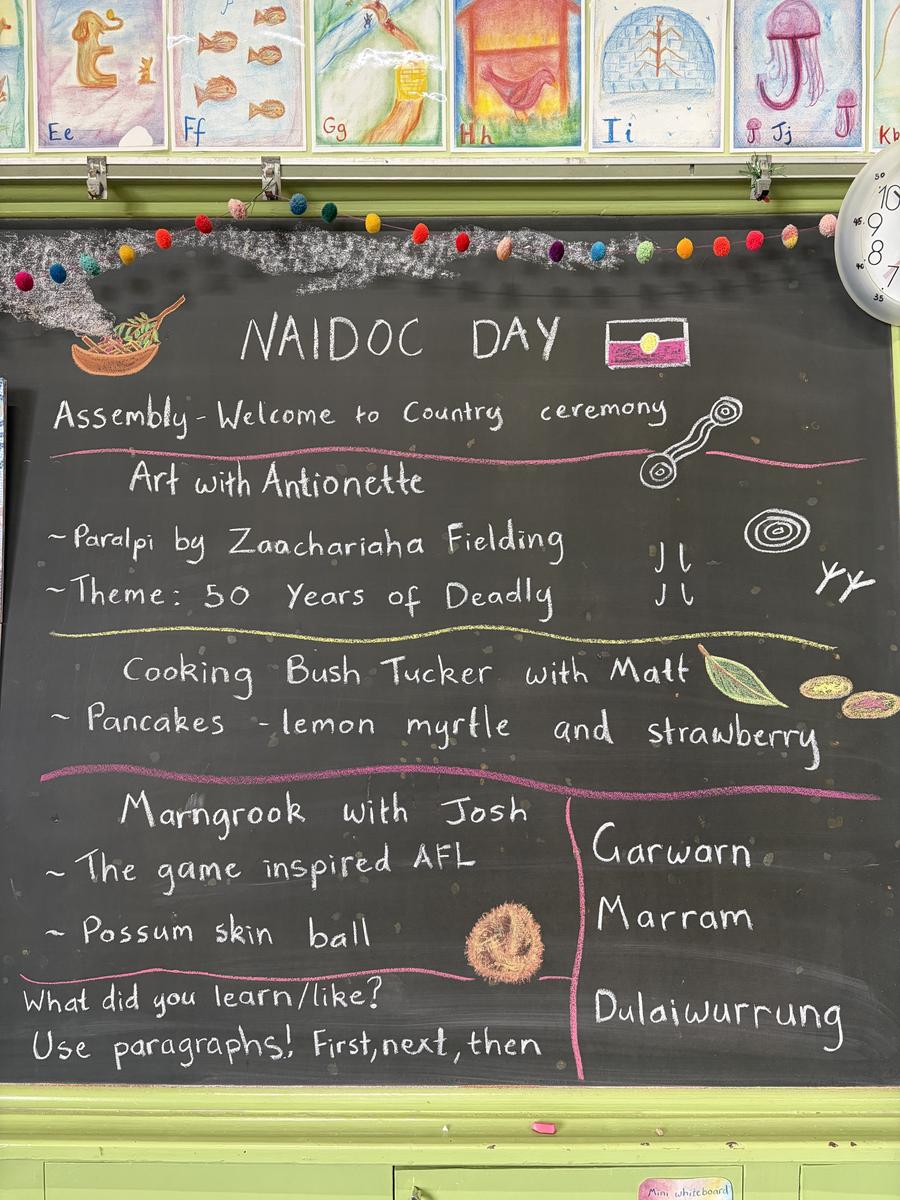 Ee
Ff
Gg
Hh
Ii
Jj
Kk
50
10
45
9
8
40
7
35
NAIDOC DAY
Assembly - Welcome to Country ceremony
Art with Antionette
~ Paralpi by Zaachariaha Fielding
~ Theme: 50 Years of Deadly
Cooking Bush Tucker with Matt
~ Pancakes - lemon myrtle and strawberry
Marngrook with Josh
~ The game inspired AFL
~ Possum skin ball
What did you learn/like?
Use paragraphs! First, next, then
Garwarn
Marram
Dulaiwurrung
Mini whiteboard